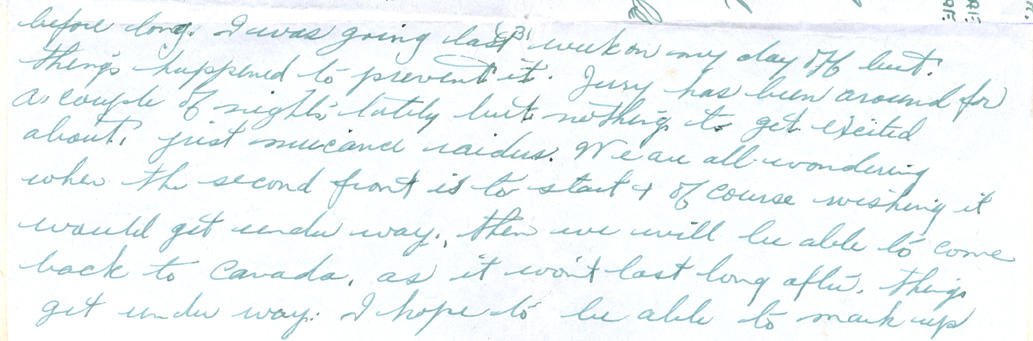 before long. I was going last week on my day off but.
things happened to prevent it. Jerry has been around for
a couple of nights lately but nothing to get excited
about, just nuicance raiders. We are all wondering
when the second front is to start & of course wishing it
would get under way, then we will be able to come
back to Canada, as it won't last long after, things
get under way. I hope to be able to mark up